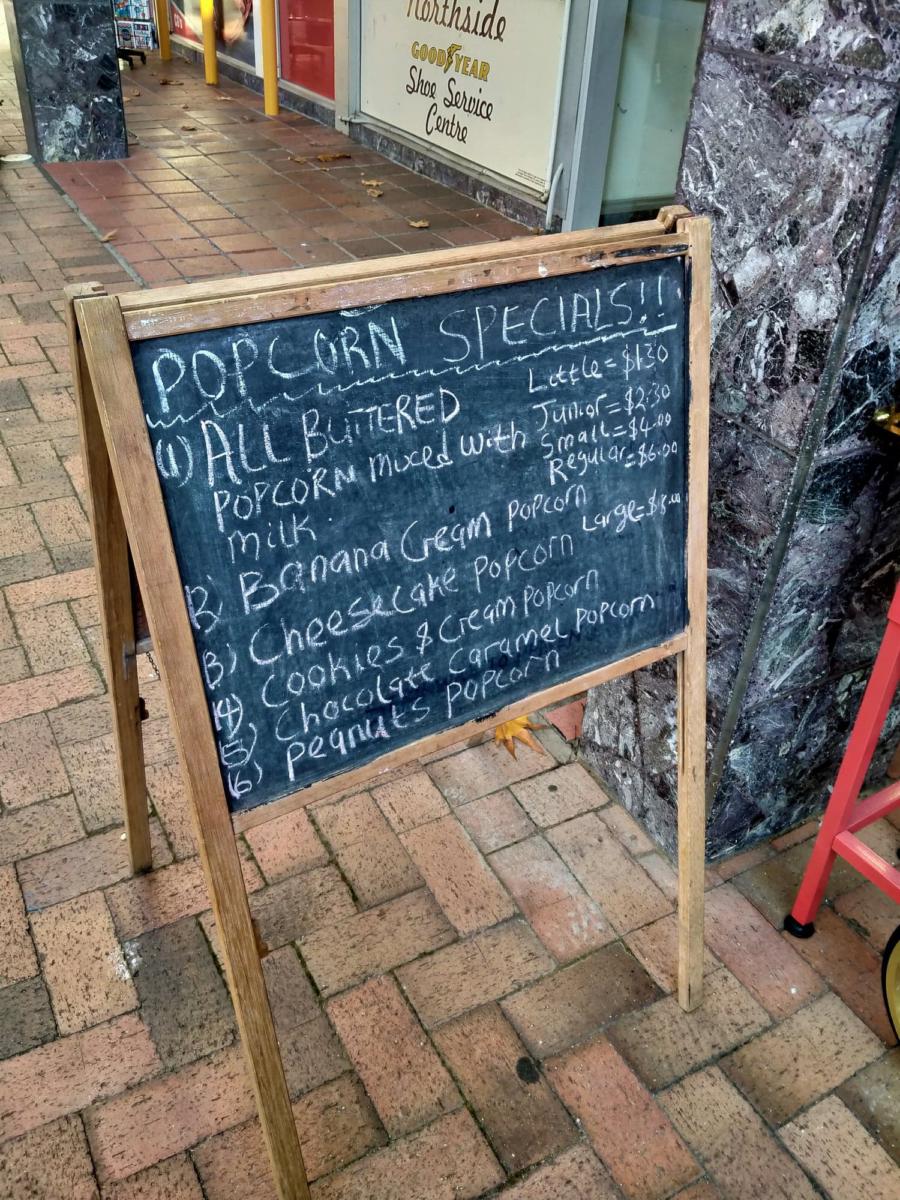 Northside
GOODYEAR
Shoe Service
Centre
POPCORN SPECIALS!!
(1) ALL BUTTERED
POPCORN mixed with
milk.
Little = $1.30
Junior = $2.30
Small = $4.00
Regular = $6.00
Large = $8.00
2) Banana Cream Popcorn
3) Cheesecake Popcorn
(4) Cookies & Cream Popcorn
5) Chocolate Caramel Popcorn
6) Peanuts Popcorn